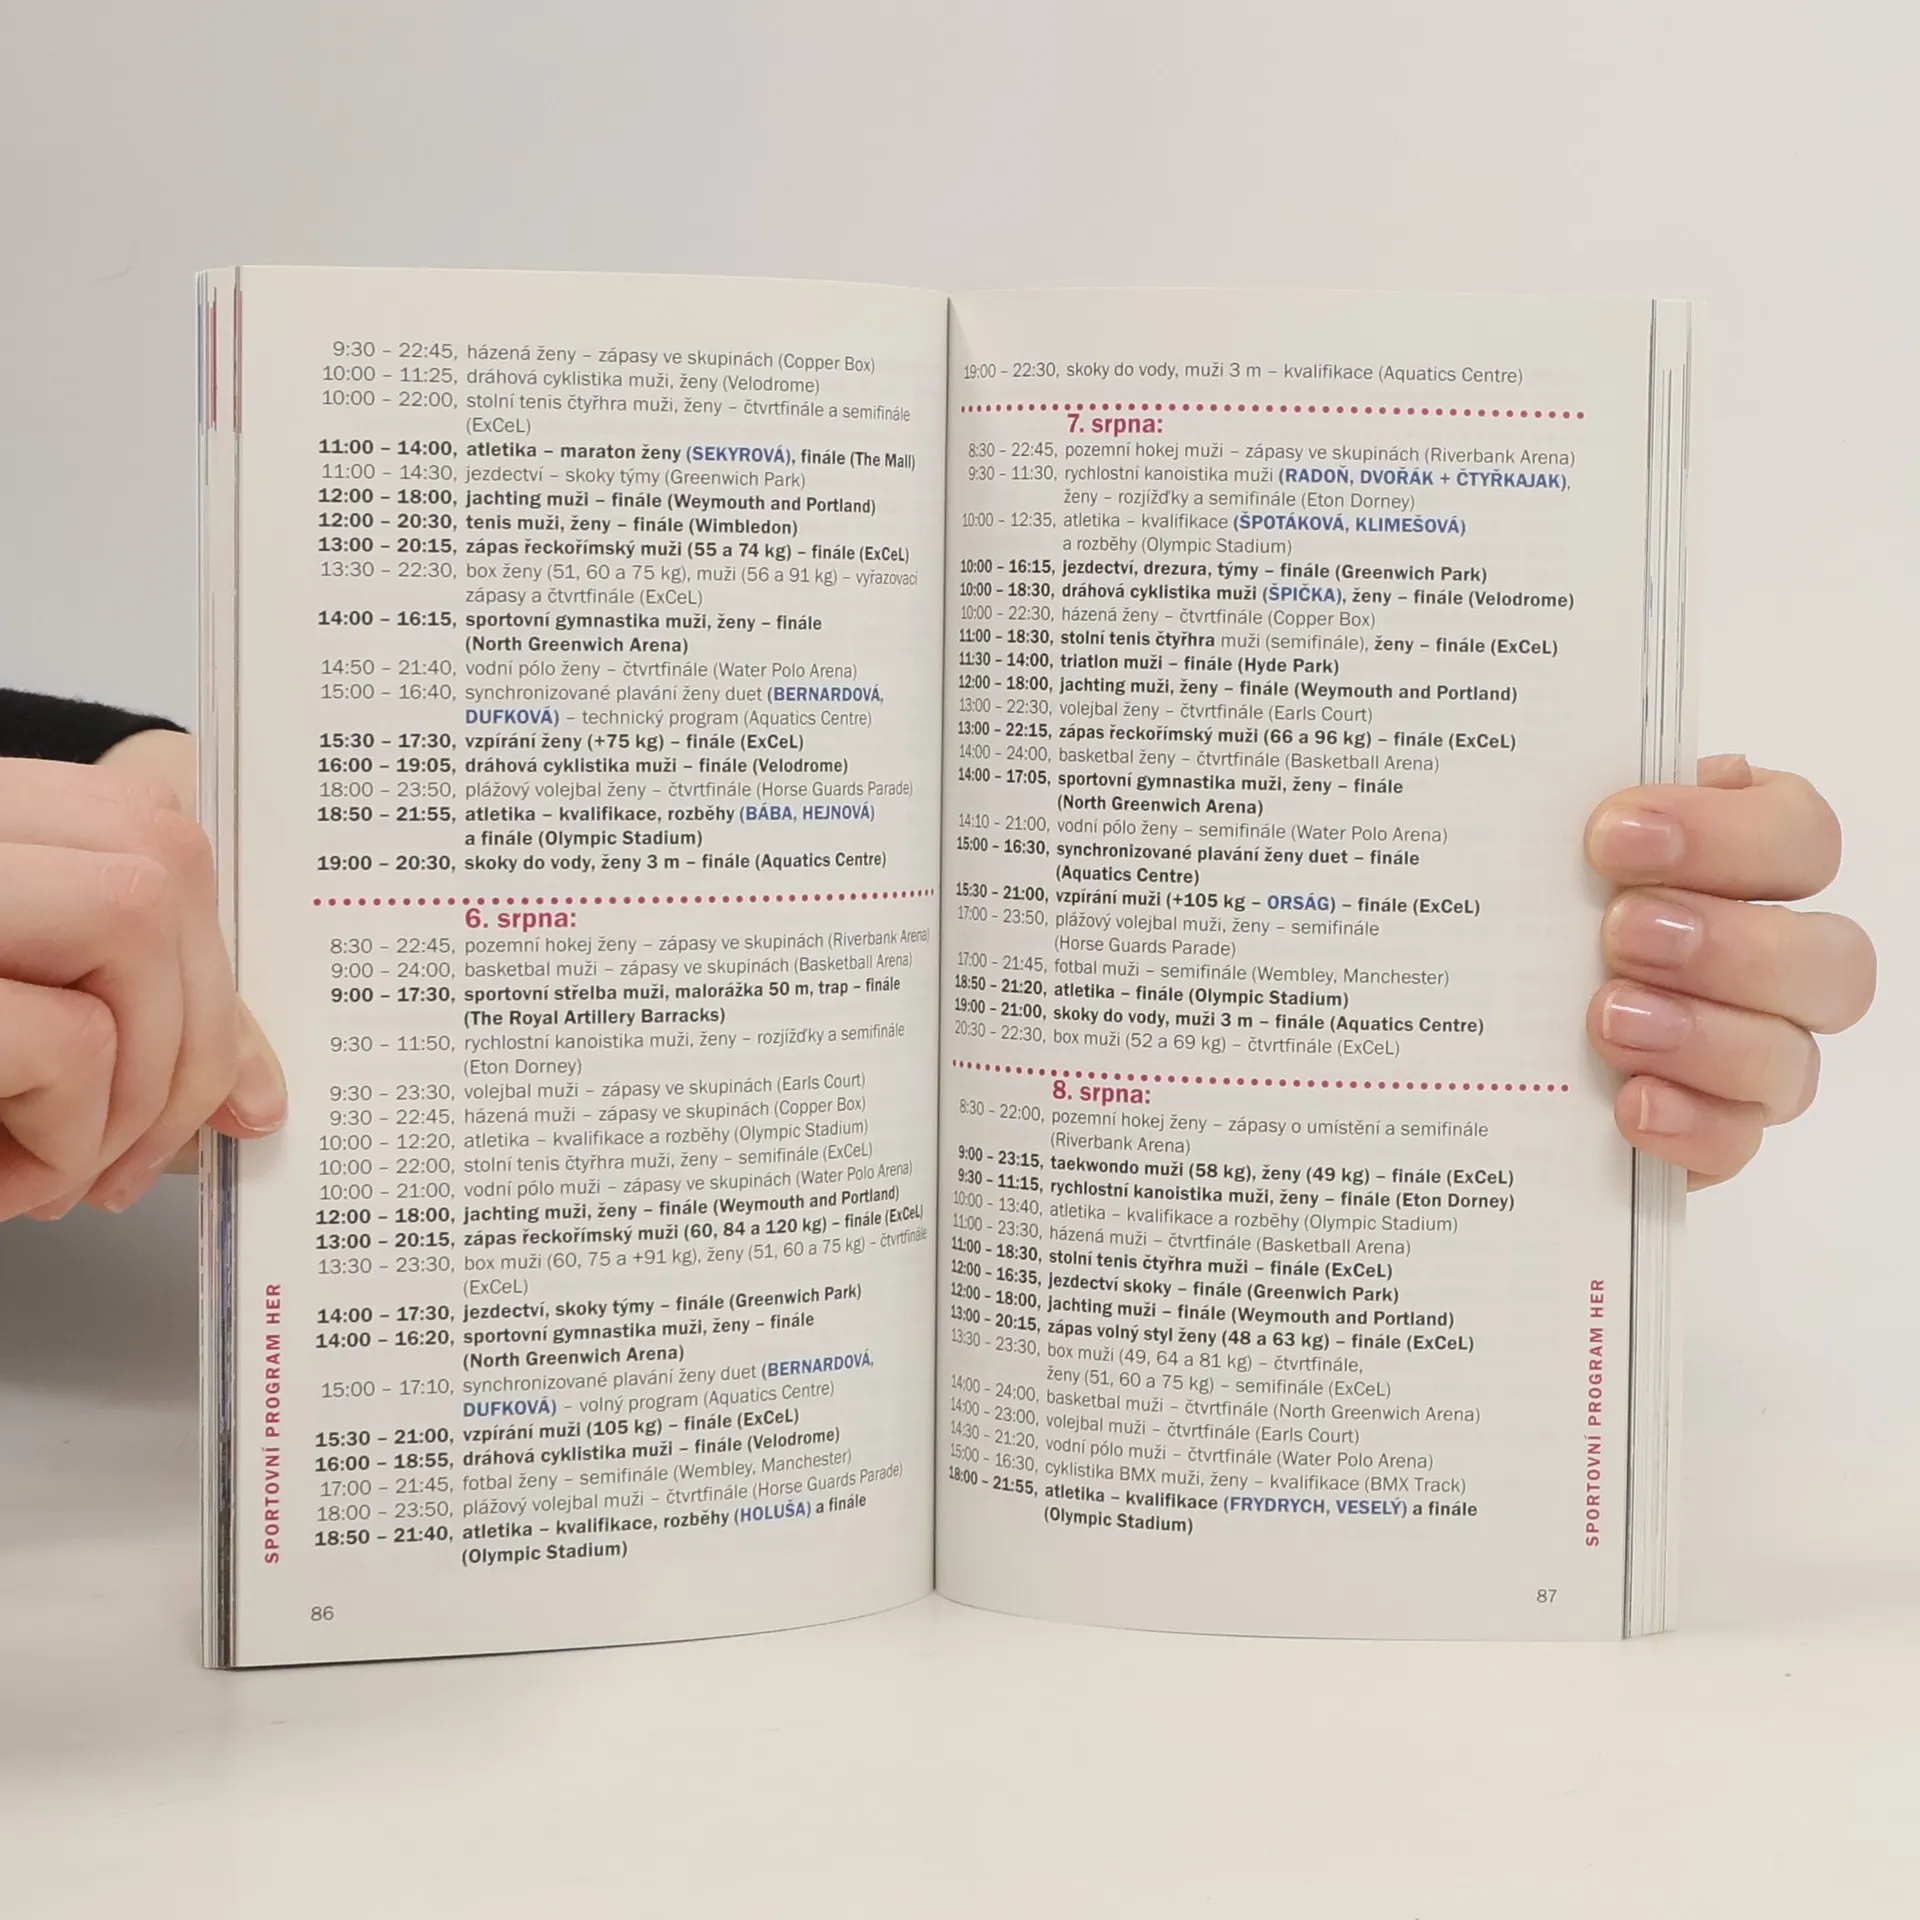 9:30 – 22:45, házená ženy – zápasy ve skupinách (Copper Box)
10:00 – 11:25, dráhová cyklistika muži, ženy (Velodrome)
10:00 – 22:00, stolní tenis čtyřhra muži, ženy – čtvrtfinále a semifinále
(ExCeL)
11:00 – 14:00, atletika – maraton ženy (SEKYROVÁ), finále (The Mall)
11:00 – 14:30, jezdectví – skoky týmy (Greenwich Park)
12:00 – 18:00, jachting muži – finále (Weymouth and Portland)
12:00 – 20:30, tenis muži, ženy – finále (Wimbledon)
13:00 – 20:15, zápas řeckořímský muži (55 a 74 kg) – finále (ExCeL)
13:30 – 22:30, box ženy (51, 60 a 75 kg), muži (56 a 91 kg) – vyřazovací
zápasy a čtvrtfinále (ExCeL)
14:00 – 16:15, sportovní gymnastika muži, ženy – finále
(North Greenwich Arena)
14:50 – 21:40, vodní pólo ženy – čtvrtfinále (Water Polo Arena)
15:00 – 16:40, synchronizované plavání ženy duet (BERNARDOVÁ,
DUFKOVÁ) – technický program (Aquatics Centre)
15:30 – 17:30, vzpírání ženy (+75 kg) – finále (ExCeL)
16:00 – 19:05, dráhová cyklistika muži – finále (Velodrome)
18:00 – 23:50, plážový volejbal ženy – čtvrtfinále (Horse Guards Parade)
18:50 – 21:55, atletika – kvalifikace, rozběhy (BÁBA, HEJNOVÁ)
a finále (Olympic Stadium)
19:00 – 20:30, skoky do vody, ženy 3 m – finále (Aquatics Centre)
6. srpna:
8:30 – 22:45, pozemní hokej ženy – zápasy ve skupinách (Riverbank Arena)
9:00 – 24:00, basketbal muži – zápasy ve skupinách (Basketball Arena)
9:00 – 17:30, sportovní střelba muži, malorážka 50 m, trap – finále
(The Royal Artillery Barracks)
9:30 – 11:50, rychlostní kanoistika muži, ženy – rozjížďky a semifinále
(Eton Dorney)
9:30 – 23:30, volejbal muži – zápasy ve skupinách (Earls Court)
9:30 – 22:45, házená muži – zápasy ve skupinách (Copper Box)
10:00 – 12:20, atletika – kvalifikace a rozběhy (Olympic Stadium)
10:00 – 22:00, stolní tenis čtyřhra muži, ženy – semifinále (ExCeL)
10:00 – 21:00, vodní pólo muži – zápasy ve skupinách (Water Polo Arena)
12:00 – 18:00, jachting muži, ženy – finále (Weymouth and Portland)
13:00 – 20:15, zápas řeckořímský muži (60, 84 a 120 kg) – finále (ExCeL)
13:30 – 23:30, box muži (60, 75 a +91 kg), ženy (51, 60 a 75 kg) – čtvrtfinále
(ExCeL)
14:00 – 17:30, jezdectví, skoky týmy – finále (Greenwich Park)
14:00 – 16:20, sportovní gymnastika muži, ženy – finále
(North Greenwich Arena)
15:00 – 17:10, synchronizované plavání ženy duet (BERNARDOVÁ,
DUFKOVÁ) – volný program (Aquatics Centre)
15:30 – 21:00, vzpírání muži (105 kg) – finále (ExCeL)
16:00 – 18:55, dráhová cyklistika muži – finále (Velodrome)
17:00 – 21:45, fotbal ženy – semifinále (Wembley, Manchester)
18:00 – 23:50, plážový volejbal muži – čtvrtfinále (Horse Guards Parade)
18:50 – 21:40, atletika – kvalifikace, rozběhy (HOLUŠA) a finále
(Olympic Stadium)
SPORTOVNÍ PROGRAM HER
86
19:00 – 22:30, skoky do vody, muži 3 m – kvalifikace (Aquatics Centre)
7. srpna:
8:30 – 22:45, pozemní hokej muži – zápasy ve skupinách (Riverbank Arena)
9:30 – 11:30, rychlostní kanoistika muži (RADOŇ, DVOŘÁK + ČTYŘKAJAK),
ženy – rozjížďky a semifinále (Eton Dorney)
10:00 – 12:35, atletika – kvalifikace (ŠPOTÁKOVÁ, KLIMEŠOVÁ)
a rozběhy (Olympic Stadium)
10:00 – 16:15, jezdectví, drezura, týmy – finále (Greenwich Park)
10:00 – 18:30, dráhová cyklistika muži (ŠPIČKA), ženy – finále (Velodrome)
10:00 – 22:30, házená ženy – čtvrtfinále (Copper Box)
11:00 – 18:30, stolní tenis čtyřhra muži (semifinále), ženy – finále (ExCeL)
11:30 – 14:00, triatlon muži – finále (Hyde Park)
12:00 – 18:00, jachting muži, ženy – finále (Weymouth and Portland)
13:00 – 22:30, volejbal ženy – čtvrtfinále (Earls Court)
13:00 – 22:15, zápas řeckořímský muži (66 a 96 kg) – finále (ExCeL)
14:00 – 24:00, basketbal ženy – čtvrtfinále (Basketball Arena)
14:00 – 17:05, sportovní gymnastika muži, ženy – finále
(North Greenwich Arena)
14:10 – 21:00, vodní pólo ženy – semifinále (Water Polo Arena)
15:00 – 16:30, synchronizované plavání ženy duet – finále
(Aquatics Centre)
15:30 – 21:00, vzpírání muži (+105 kg – ORSÁG) – finále (ExCeL)
17:00 – 23:50, plážový volejbal muži, ženy – semifinále
(Horse Guards Parade)
17:00 – 21:45, fotbal muži – semifinále (Wembley, Manchester)
18:50 – 21:20, atletika – finále (Olympic Stadium)
19:00 – 21:00, skoky do vody, muži 3 m – finále (Aquatics Centre)
20:30 – 22:30, box muži (52 a 69 kg) – čtvrtfinále (ExCeL)
8. srpna:
8:30 – 22:00, pozemní hokej ženy – zápasy o umístění a semifinále
(Riverbank Arena)
9:00 – 23:15, taekwondo muži (58 kg), ženy (49 kg) – finále (ExCeL)
9:30 – 11:15, rychlostní kanoistika muži, ženy – finále (Eton Dorney)
10:00 – 13:40, atletika – kvalifikace a rozběhy (Olympic Stadium)
11:00 – 23:30, házená muži – čtvrtfinále (Basketball Arena)
11:00 – 18:30, stolní tenis čtyřhra muži – finále (ExCeL)
12:00 – 16:35, jezdectví skoky – finále (Greenwich Park)
12:00 – 18:00, jachting muži – finále (Weymouth and Portland)
13:00 – 20:15, zápas volný styl ženy (48 a 63 kg) – finále (ExCeL)
13:30 – 23:30, box muži (49, 64 a 81 kg) – čtvrtfinále,
ženy (51, 60 a 75 kg) – semifinále (ExCeL)
14:00 – 24:00, basketbal muži – čtvrtfinále (North Greenwich Arena)
14:00 – 23:00, volejbal muži – čtvrtfinále (Earls Court)
14:30 – 21:20, vodní pólo muži – čtvrtfinále (Water Polo Arena)
15:00 – 16:30, cyklistika BMX muži, ženy – kvalifikace (BMX Track)
18:00 – 21:55, atletika – kvalifikace (FRYDRYCH, VESELÝ) a finále
(Olympic Stadium)
SPORTOVNÍ PROGRAM HER
87